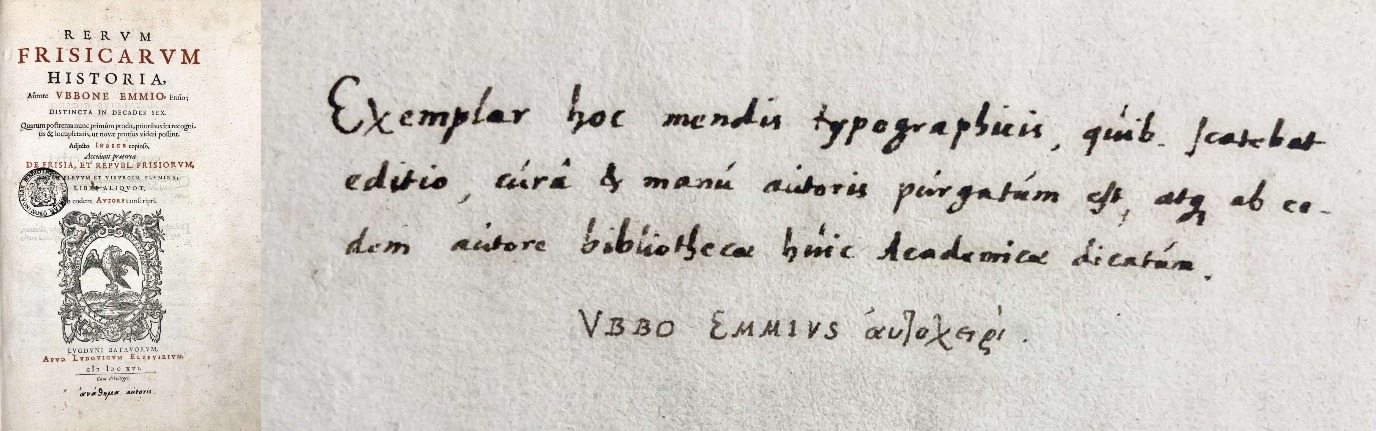 RERVM
FRISICARVM
HISTORIA,
Autore VBBONE EMMIO, Frisio;
DISTINCTA IN DECADES SEX.
Quarum postrema nunc primum prodit, prioribus ita recogni-
tis & locupletatis, ut novæ prorsus videri possint.
Adjecto INDICE copioso.
Accedunt præterea
DE FRISIA, ET REPVBL. FRISIORVM,
FLEVVM ET VISVRGIM FLVMINA,
LIBRI ALIQUOT,
ab eodem AVTORE conscripti.
LVGDVNI BATAVORVM,
APVD LVDOVICVM ELZEVIRIVM,
cIↄ Iↄc XVI.
Cum Privilegio.
ἀνάθημα autoris.
Exemplar hoc mendis typographicis, quib. scatebat
editio, cúrâ & manú aútoris púrgatúm est, atq ab eo-
dem aútore bibliothecæ húic Academicæ dicatúm.
VBBO EMMIVS αὐτοχειρὶ.